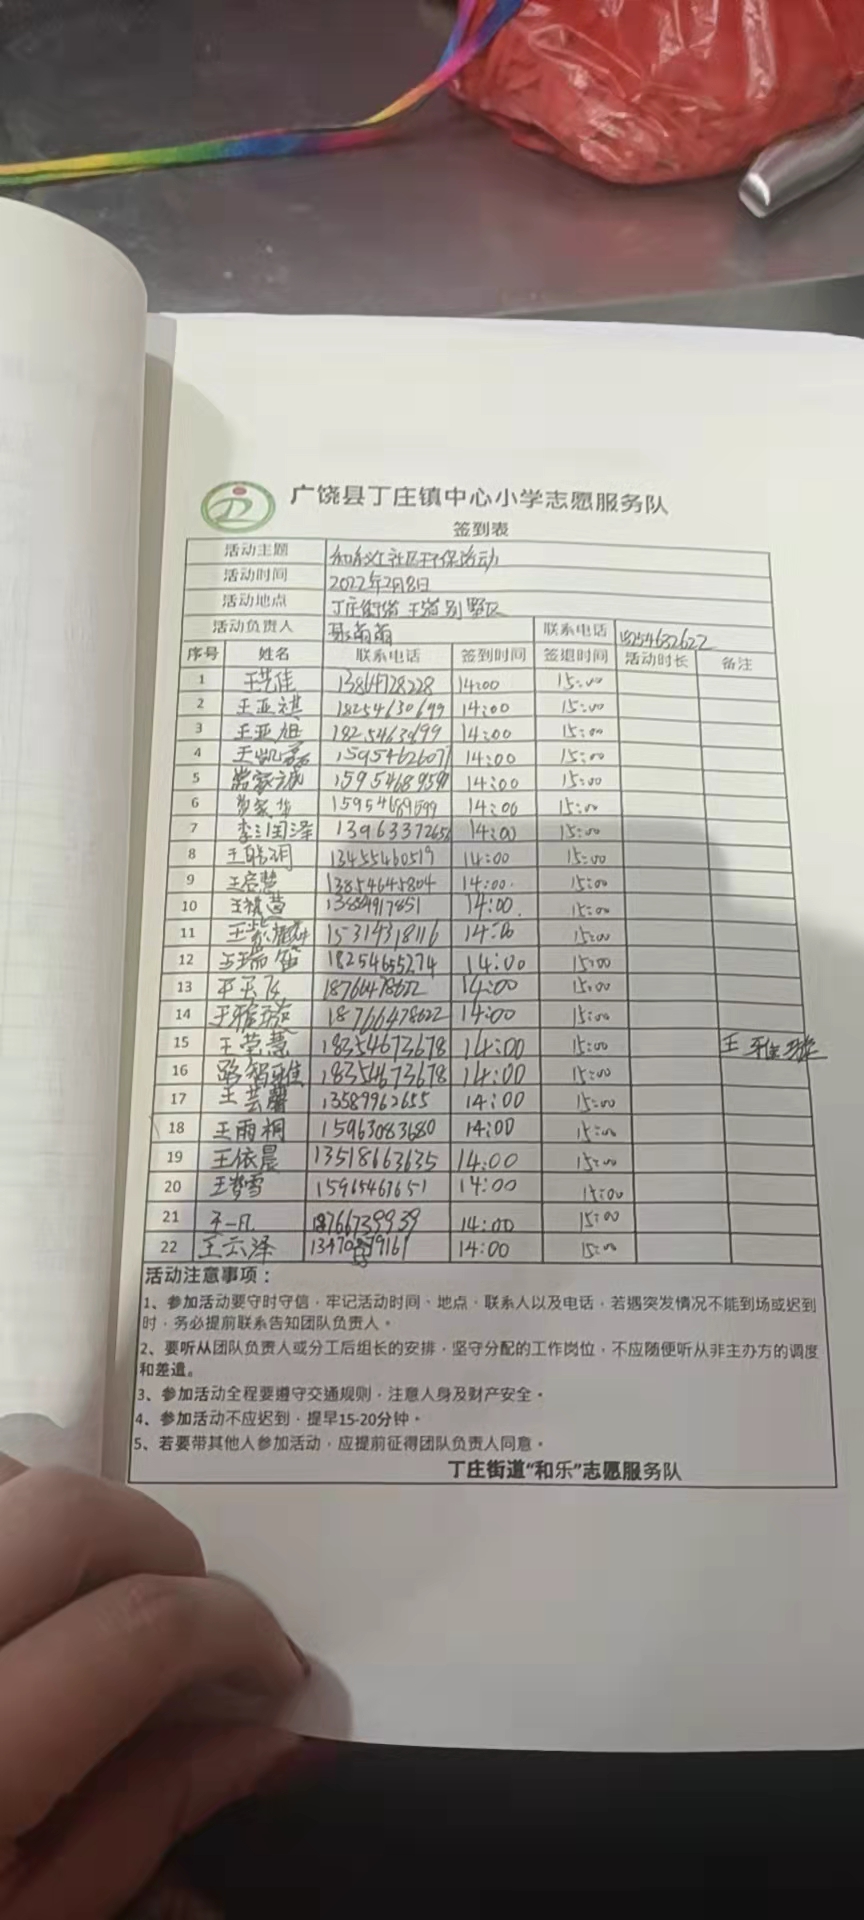 广饶县丁庄镇中心小学志愿服务队
签到表
活动主题 社区环保活动
活动时间 2022年2月8日
活动地点 丁庄街道 王道别墅区
活动负责人 聂萌萌 联系电话
序号 姓名 联系电话 签到时间 签退时间 活动时长 备注
1 13864728228 14:00 15:00
2 王亚祺 18254630699 14:00 15:00
3 王亚旭 14:00 15:00
4 王凯磊 15954626077 14:00 15:00
5 14:00 15:00
6 15954689599 14:00 15:00
7 李润泽 14:00 15:00
8 13455460519 14:00 15:00
9 王启慧 13854645804 14:00 15:00
10 14:00 15:00
11 15314318116 14:00 15:00
12 18254655274 14:00 15:00
13 14:00 15:00
14 王雅璇 18766478622 14:00 15:00
15 王莹慧 18354673678 14:00 15:00 王雅璇
16 路智雅 18354673678 14:00 15:00
17 王芸馨 13589962655 14:00 15:00
18 王雨桐 15963083680 14:00 15:00
19 王依晨 13518663635 14:00 15:00
20 王梦雪 15965463651 14:00 15:00
21 王一凡 18766739939 14:00 15:00
22 王云泽 14:00 15:00
活动注意事项：
1、参加活动要守时守信，牢记活动时间、地点、联系人以及电话，若遇突发情况不能到场或迟到
时，务必提前联系告知团队负责人。
2、要听从团队负责人或分工后组长的安排，坚守分配的工作岗位，不应随便听从非主办方的调度
和差遣。
3、参加活动全程要遵守交通规则，注意人身及财产安全。
4、参加活动不应迟到，提早15-20分钟。
5、若要带其他人参加活动，应提前征得团队负责人同意。
丁庄街道“和乐”志愿服务队